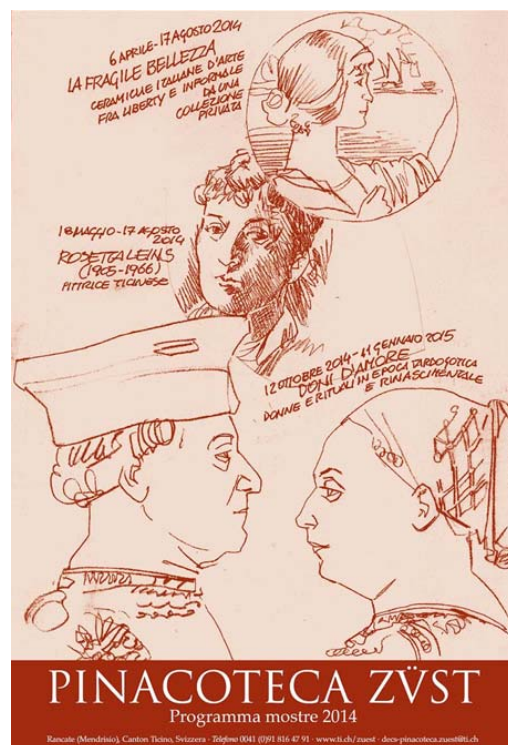 6 APRILE-17 AGOSTO 2014
LA FRAGILE BELLEZZA
CERAMICHE ITALIANE D'ARTE
FRA LIBERTY E INFORMALE
DA UNA
COLLEZIONE
PRIVATA
18 MAGGIO-17 AGOSTO
2014
ROSETTA LEINS
(1905-1966)
PITTRICE TICINESE
12 OTTOBRE 2014-11 GENNAIO 2015
DONI D'AMORE
DONNE E RITUALI IN EPOCA TARDOGOTICA
E RINASCIMENTALE
PINACOTECA ZÜST
Programma mostre 2014
Rancate (Mendrisio), Canton Ticino, Svizzera · Telefono 0041 (0)91 816 47 91 · www.ti.ch/zuest · decs-pinacoteca.zuest@ti.ch